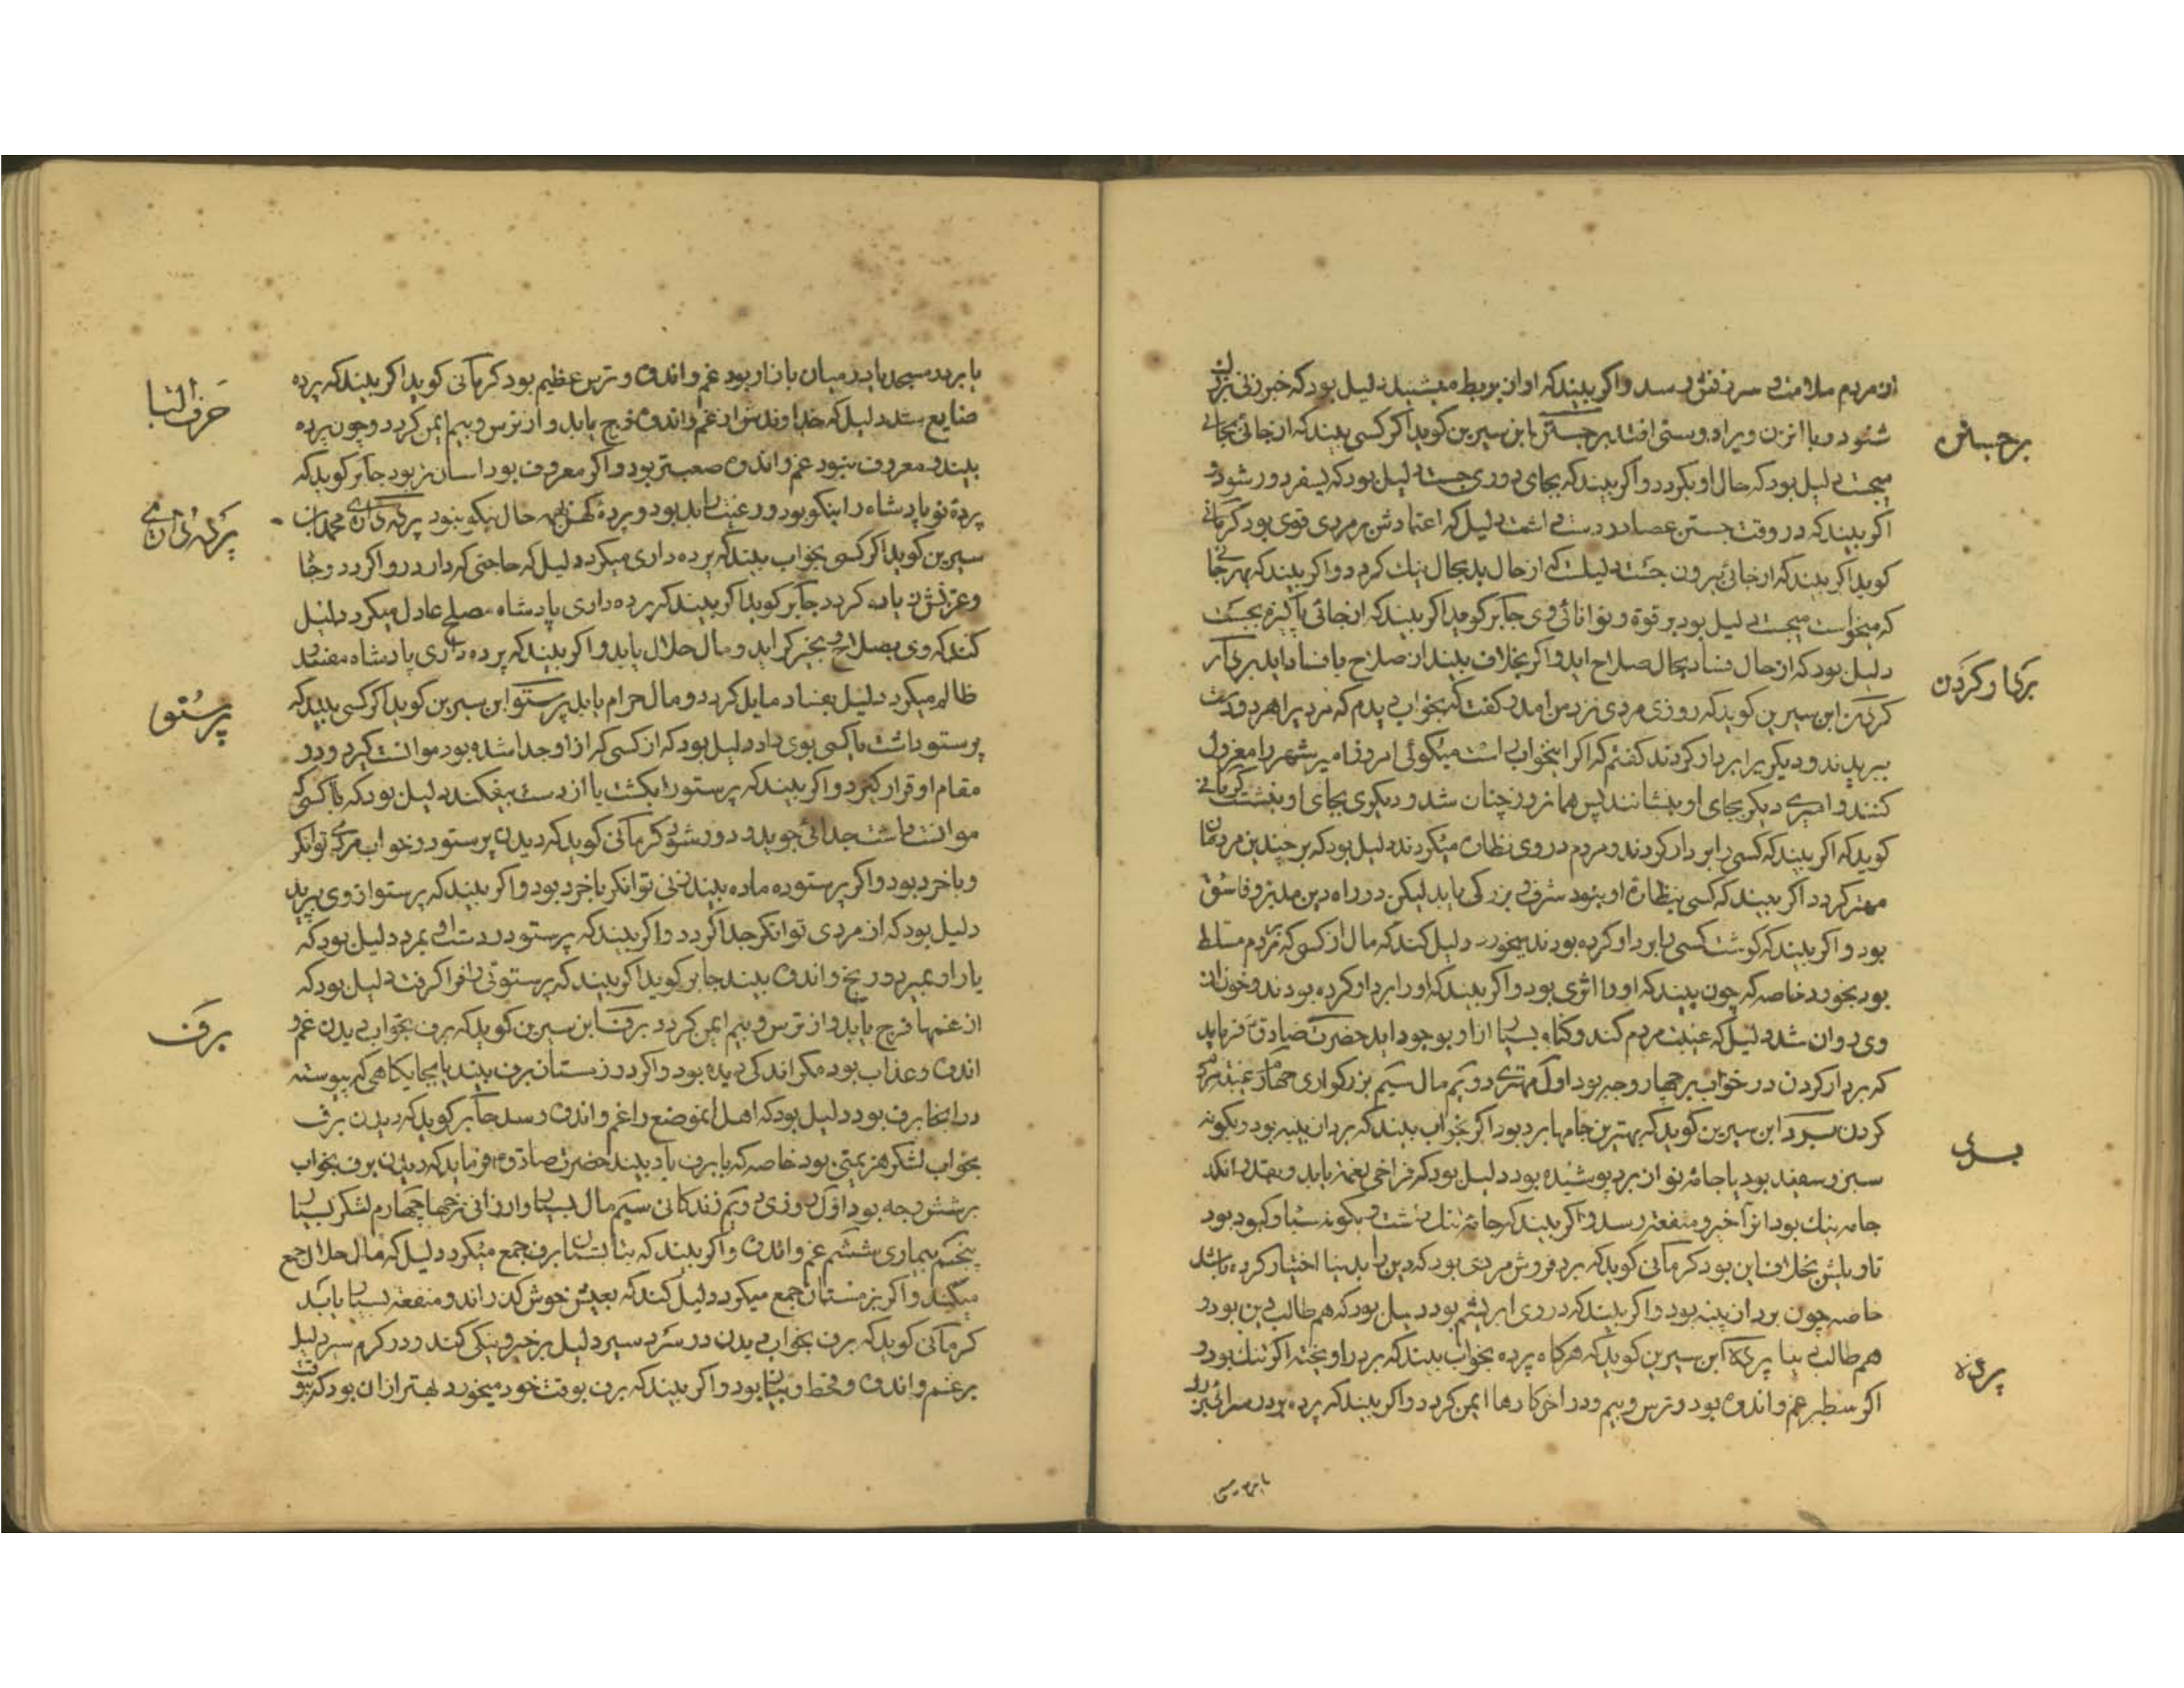 ان مردم ملامت و سرزنش رسد و اکر بیند که او ان بربط میشنید دلیل بود که خبر زنی بزرک
شنود و با انزن ویرا دوستی افتد برجستن ابن سیرین کوید اکر کسی بیند که از جائی بجائی
برجستن
میجست دلیل بود که حال او بکردد و اکر بیند که بجای دوری جست دلیل بود که بسفر دور شود و
اکر بیند که در وقت جستن عصا در دست داشت دلیل که اعتمادش بر مردی قوی بود کرمانی
کوید اکر بیند که از جائی بیرون جست دلیلست که از حال بد بحال نیک کردد و اکر بیند که بهر جا
که میخواست میجست دلیل بود بر قوة و توانائی وی جابر کوید اکر بیند که از جائی پاکیزه بجست
دلیل بود که از حال فساد بحال صلاح اید و اکر بخلاف بیند از صلاح بافساد اید بردار
برکار کردن
کردن ابن سیرین کوید که روزی مردی نزد من امد و کفت که بخواب دیدم که مرد پرا هر دو دست
ببریدند و دیکریرا بردار کردند کفتم که اکر اینخواب راست میکوئی امروز امیر شهر را معزول
کنند و امیری دیکر بجای او بنشانند پس همانروز چنان شد و دیکری بجای او بنشست کرمانی
کوید که اکر بیند که کسی را بر دار کردند و مردم در وی نظاره میکردند دلیل بود که بر چندین مردمان
مهتر کردد اکر بیند که کسی بنظاره او نبود شرف و بزرکی یابد لیکن در راه دین مدبر و فاسق
بود و اکر بیند که کوشت کسی را بر دار کرده بودند میخورد دلیل کند که مال از کسی که بر مردم مسلط
بود بخورد خاصه که چون بیند که او را اثری بود و اکر بیند که او را بر دار کرده بودند و خون از
وی روان شد دلیل که غیبت مردم کند و کناه بسیار از او بوجود اید حضرت صادق فرماید
که بردار کردن در خواب بر چهار وجه بود اول مهتری دویم مال سیم بزرکواری چهارم غیبة مردم
کردن برد ابن سیرین کوید که بهترین جامها برد بود اکر بخواب بیند که برد از پنبه بود و بکونه
برد
سبز و سفید بود یا جامه نو ان برد پوشیده بود دلیل بود که فراخی نعمة یابد و بقدر انکه
جامه نیک بود انرا خیر و منفعة رسد و اکر بیند که جامه تنک داشت و بکونه سیاه و کبود بود
تاویلش بخلاف این بود کرمانی کوید که برد فروش مردی بود که دین را بدنیا اختیار کرده باشد
خاصه چون برد از پنبه بود و اکر بیند که در وی ابریشم بود دلیل بود که هم طالب دین بود و
هم طالب دنیا پرده ابن سیرین کوید که هرکاه پرده بخواب بیند که بر در اویخته اکر تنک بود و
پرده
اکر سطبر غم و اندوه بود و ترس و بیم و در اخر کارها ایمن کردد و اکر بیند که پرده بر در سرائی بزرک
یا بر در مسجد یا در میان بازار بود غم و اندوه و ترس عظیم بود کرمانی کوید اکر بیند که پرده
حرف البا
ضایع شد دلیل که خداوندش از غم و اندوه فرج یابد و از ترس و بیم ایمن کردد و چون پرده
بیند و معروف نبود غم و اندوه صعبتر بود و اکر معروف بود اسانتر بود جابر کوید که
پردة نو پادشاه را نیکو بود و رعیت را بد بود و پرده کهنه حال نیکو نبود پرده داری محمد بن
پرده داری
سیرین کوید اکر کسی بخواب بیند که پرده داری میکرد دلیل که حاجتی که دارد روا کردد و جاه
و عزتش زیاده کردد جابر کوید اکر بیند که پرده داری پادشاه مصلح عادل میکرد دلیل
کند که وی بصلاح و بخیر کراید و مال حلال یابد و اکر بیند که پرده داری پادشاه مفسد
ظالم میکرد دلیل بفساد مایل کردد و مال حرام یابد پرستو ابن سیرین کوید اکر کسی بیند که
پرستو
پرستو داشت یا کسی بوی داد دلیل بود که از کسی که از او جدا شده بود موانست کیرد و در
مقام او قرار کیرد و اکر بیند که پرستو را بکشت یا از دست بیفکند دلیل بود که با کسی که
موانست داشت جدائی جوید و دور شود کرمانی کوید که دیدن پرستو در خواب مردی توانکر
و باخرد بود و اکر پرستوه ماده بیند زنی توانکر باخرد بود و اکر بیند که پرستو از وی پرید
دلیل بود که از مردی توانکر جدا کردد و اکر بیند که پرستو در دست او بمرد دلیل بود که
یار او بمیرد و رنج و اندوه بیند جابر کوید اکر بیند که پرستوئی را فرا کرفت دلیل بود که
از غمها فرج یابد و از ترس و بیم ایمن کردد برف ابن سیرین کوید که برف بخواب دیدن غم و
برف
اندوه و عذاب بود مکر اندکی دیده بود و اکر در زمستان برف بیند یا بجایکاهی که پیوسته
در انجا برف بود دلیل بود که اهل انموضع را غم و اندوه رسد جابر کوید که دیدن برف
بخواب لشکر هزیمتی بود خاصه که با برف باد بیند حضرت صادق فرماید که دیدن برف بخواب
بر شش وجه بود اول روزی دویم زندکانی سیم مال بسیار و ارزانی نرخها چهارم لشکر بسیار
پنجم بیماری ششم غم و اندوه و اکر بیند که بتابستان برف جمع میکرد دلیل که مال حلال جمع
میکند و اکر بزمستان جمع میکرد دلیل کند که بعیش خوش کذراند و منفعة بسیار یابد
کرمانی کوید که برف بخواب دیدن در سردسیر دلیل بر خیر و نیکی کند و در کرم سیر دلیل
بر غم و اندوه و قحط بود و اکر بیند که برف بوقت خود میخورد بهتر از ان بود که